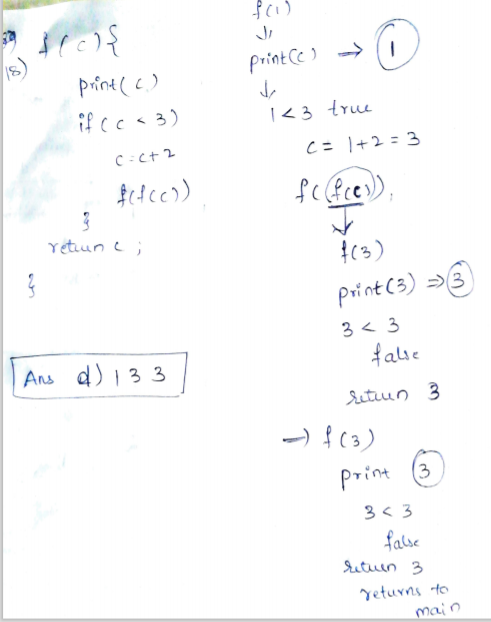 18)
f(c){
print(c)
if(c < 3)
c=c+2
f(f(c))
}
return c ;
}
Ans d) 1 3 3
f(1)
↓
print(c) → 1
↓
1<3 true
c = 1+2 = 3
f(f(c)),
↓
f(3)
print(3) ⇒ 3
3 < 3
false
return 3
→ f(3)
print 3
3 < 3
false
return 3
returns to
main